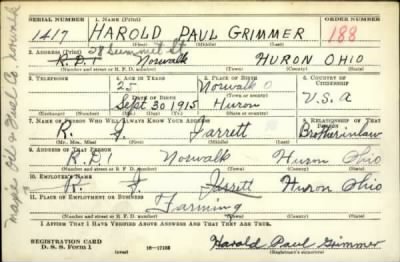 SERIAL NUMBER 1. NAME (Print) ORDER NUMBER
1417 HAROLD PAUL GRIMMER 188
(First) (Middle) (Last)
2. ADDRESS (Print) 58 Summit St
R.D.1 Norwalk HURON OHIO
(Number and street or R. F. D. number) (Town) (County) (State)
3. TELEPHONE 4. AGE IN YEARS 5. PLACE OF BIRTH 6. COUNTRY OF CITIZENSHIP
25 Norwalk O
DATE OF BIRTH (Town or county)
Sept 30 1915 Huron U.S.A
(Exchange) (Number) (Mo.) (Day) (Yr.) (State or country)
7. NAME OF PERSON WHO WILL ALWAYS KNOW YOUR ADDRESS 8. RELATIONSHIP OF THAT PERSON
R. J. Jarrett Brotherinlaw
(Mr., Mrs., Miss) (First) (Middle) (Last)
9. ADDRESS OF THAT PERSON
R.D.1 Norwalk Huron Ohio
(Number and street or R. F. D. number) (Town) (County) (State)
10. EMPLOYER'S NAME
R. J. Jarrett Huron Ohio
11. PLACE OF EMPLOYMENT OR BUSINESS
Farming
(Number and street or R. F. D. number) (Town) (County) (State)
I AFFIRM THAT I HAVE VERIFIED ABOVE ANSWERS AND THAT THEY ARE TRUE.
REGISTRATION CARD
D. S. S. Form 1 (over) 16—17105 Harold Paul Grimmer
(Registrant's signature)
Oil & Fuel Co. Norwalk